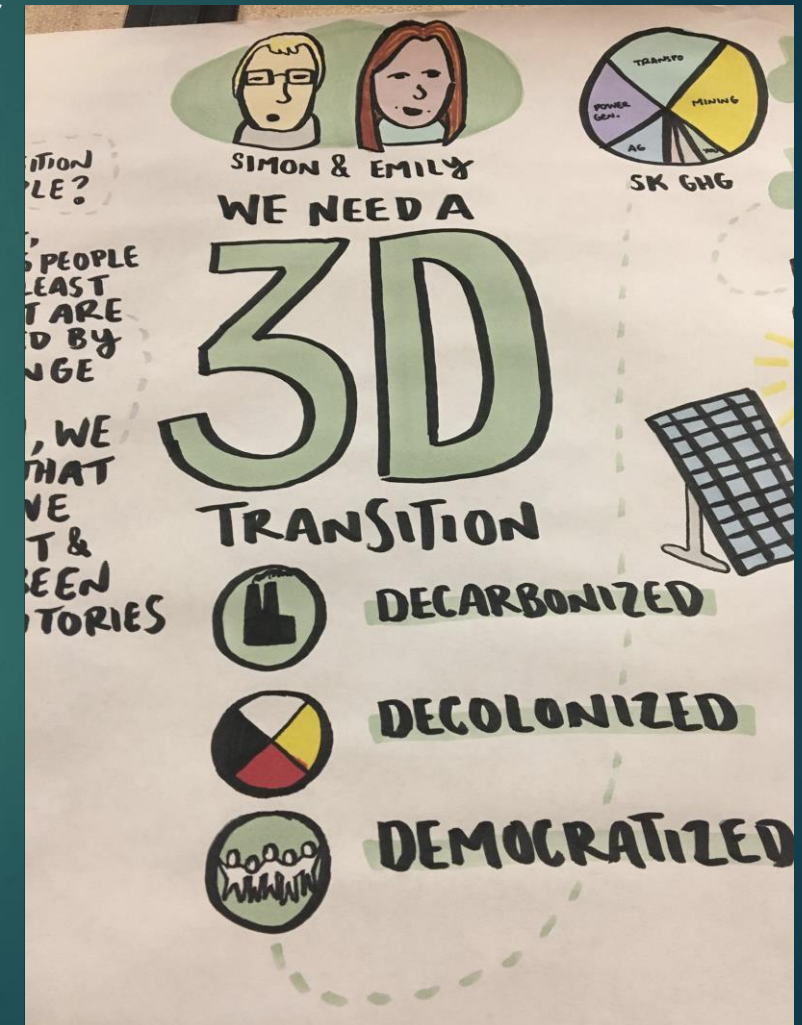 ITION
LE?
S PEOPLE
LEAST
T ARE
D BY
NGE
, WE
THAT
VE
T &
BEEN
TORIES
SIMON & EMILY
WE NEED A
3D
TRANSITION
DECARBONIZED
DECOLONIZED
DEMOCRATIZED
TRANSPO
MINING
POWER
GEN.
AG
SK GHG